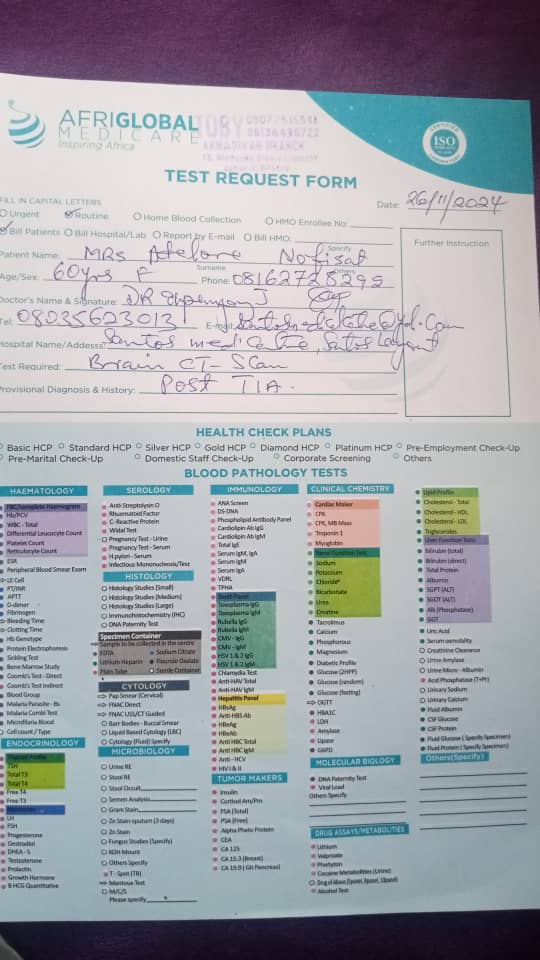 AFRIGLOBAL
MEDICARE
Inspiring Africa
CERTIFIED
ISO
TEST REQUEST FORM
FILL IN CAPITAL LETTERS
Date: 26/11/2024
Urgent Routine Home Blood Collection HMO Enrollee No:
Bill Patients Bill Hospital/Lab Report by E-mail Bill HMO:
Specify
Further Instruction
Patient Name: MRS Nofisat
Surname Others
Age/Sex: 60yrs F Phone: 08162728299
Doctor's Name & Signature: DR
Tel: 08035623013 E-mail:
Hospital Name/Address: Santos medicentre, Santos Layout
Test Required: Brain CT-Scan
Provisional Diagnosis & History: Post TIA.
HEALTH CHECK PLANS
Basic HCP Standard HCP Silver HCP Gold HCP Diamond HCP Platinum HCP Pre-Employment Check-Up
Pre-Marital Check-Up Domestic Staff Check-Up Corporate Screening Others
BLOOD PATHOLOGY TESTS
HAEMATOLOGY
FBC/complete Haemogram
Hb/PCV
WBC - Total
Differential Leucocyte Count
Platelet Count
Reticulocyte Count
ESR
Peripheral Blood Smear Exam
LE Cell
PT/INR
APTT
D-dimer
Fibrinogen
Bleeding Time
Clotting Time
Hb Genotype
Protein Electrophoresis
Sickling Test
Bone Marrow Study
Coomb's Test - Direct
Coomb's Test Indirect
Blood Group
Malaria Parasite - Bs
Malaria Combi Test
Microfilaria Blood
Cell count / Type
ENDOCRINOLOGY
TSH
Total T3
Total T4
Free T4
Free T3
LH
FSH
Progesterone
Oestradiol
DHEA - S
Testosterone
Prolactin
Growth Hormone
B HCG Quantitative
SEROLOGY
Anti Streptolysin O
Rheumatoid Factor
C-Reactive Protein
Widal Test
Pregnancy Test - Urine
Pregnancy Test - Serum
H.pylori - Serum
Infectious Mononucleosis/Test
HISTOLOGY
Histology Studies (Small)
Histology Studies (Medium)
Histology Studies (Large)
Immunohistochemistry (IHC)
DNA Paternity Test
Specimen Container
Sample to be collected in the centre
EDTA Sodium Citrate
Lithium Heparin Flouride Oxalate
Plain Tube Sterile Container
CYTOLOGY
Pap Smear (Cervical)
FNAC Direct
FNAC USS/CT Guided
Barr Bodies - Buccal Smear
Liquid Based Cytology (LBC)
Cytology (Fluid) Specify
MICROBIOLOGY
Urine RE
Stool RE
Stool Occult
Semen Analysis
Gram Stain
Zn Stain-sputum (3 days)
Zn Stain
Fungus Studies (Specify)
KOH Mount
Others Specify
T - Spot (TB)
Mantoux Test
M/C/S
Please specify
IMMUNOLOGY
ANA Screen
DS-DNA
Phospholipid Antibody Panel
Cardiolipin Ab IgG
Cardiolipin Ab IgM
Total IgE
Serum IgM, IgA
Serum IgM
Serum IgA
VDRL
TPHA
Torch Panel
Toxoplasma IgG
Toxoplasma IgM
Rubella IgG
Rubella IgM
CMV - IgG
CMV - IgM
HSV 1 & 2 IgG
HSV 1 & 2 IgM
Chlamydia Test
Anti-HAV Total
Anti-HAV IgM
Hepatitis Panel
HBsAg
Anti-HBS Ab
HBeAg
HBeAb
Anti HBC Total
Anti HBC IgM
Anti - HCV
HIV I & II
TUMOR MAKERS
Insulin
Cortisol Am/Pm
PSA (Total)
PSA (Free)
Alpha Photo Protein
CEA
CA 125
CA 15.3 (Breast)
CA 19.9 (GH Pancreas)
CLINICAL CHEMISTRY
Cardiac Maker
CPK
CPK, MB Mass
Troponin 1
Myoglobin
Renal Function Test
Sodium
Potassium
Chloride
Bicarbonate
Urea
Creatine
Tacrolimus
Calcium
Phosphorous
Magnesium
Diabetic Profile
Glucose (2HPP)
Glucose (random)
Glucose (fasting)
OGTT
HBA1C
LDH
Amylase
Lipase
G6PD
MOLECULAR BIOLOGY
DNA Paternity Test
Viral Load
Others Specify
DRUG ASSAYS/METABOLITIES
Lithium
Valproate
Phenytoin
Cocaine Metabolities (Urine)
Alcohol Test
Lipid Profile
Cholesterol - Total
Cholesterol - HDL
Cholesterol - LDL
Triglycerides
Liver Function Tests
Bilirubin (total)
Bilirubin (direct)
Total Protein
Albumin
SGPT (ALT)
SGOT (ALT)
Alk (Phosphatase)
GGT
Uric Acid
Serum osmolality
Creatinine Clearance
Urine Amylase
Urine Micro - Albumin
Acid Phosphatase (T+Pr)
Urinary Sodium
Urinary Calcium
Fluid Albumin
CSF Glucose
CSF Protein
Fluid Glucose ( Specify Specimen)
Fluid Protein ( Specify Specimen)
Others(Specify)